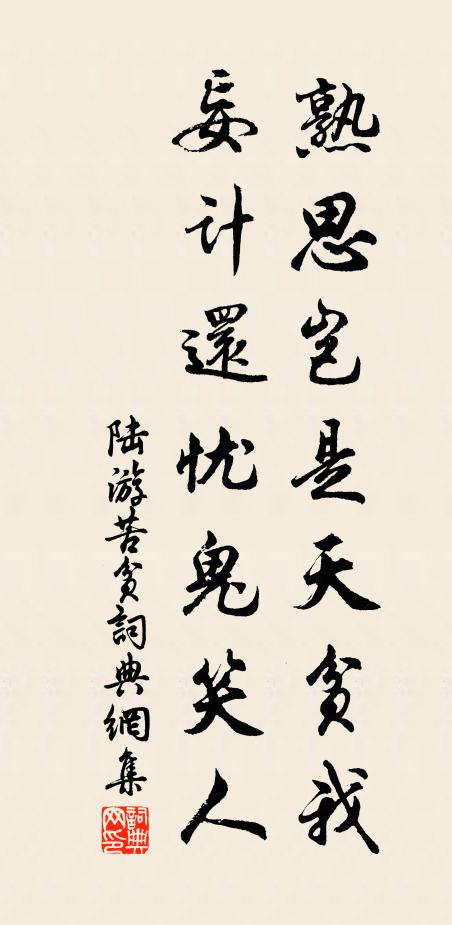 熟思岂是天贫我
妄计還忧鬼笑人
陆游苦贫詞典網集
詞典网印